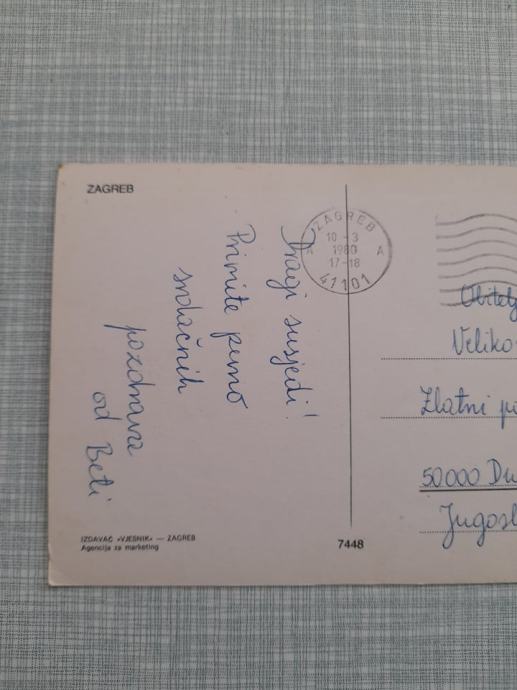 ZAGREB
Dragi susjedi!
Primite puno
srdačnih
pozdrava
od Beti
ZAGREB
10 -3
1980
A A
17-18
41101
Obitelj
Veliko
Zlatni po
50000 Du
Jugosl
IZDAVAČ «VJESNIK» — ZAGREB
Agencija za marketing
7448